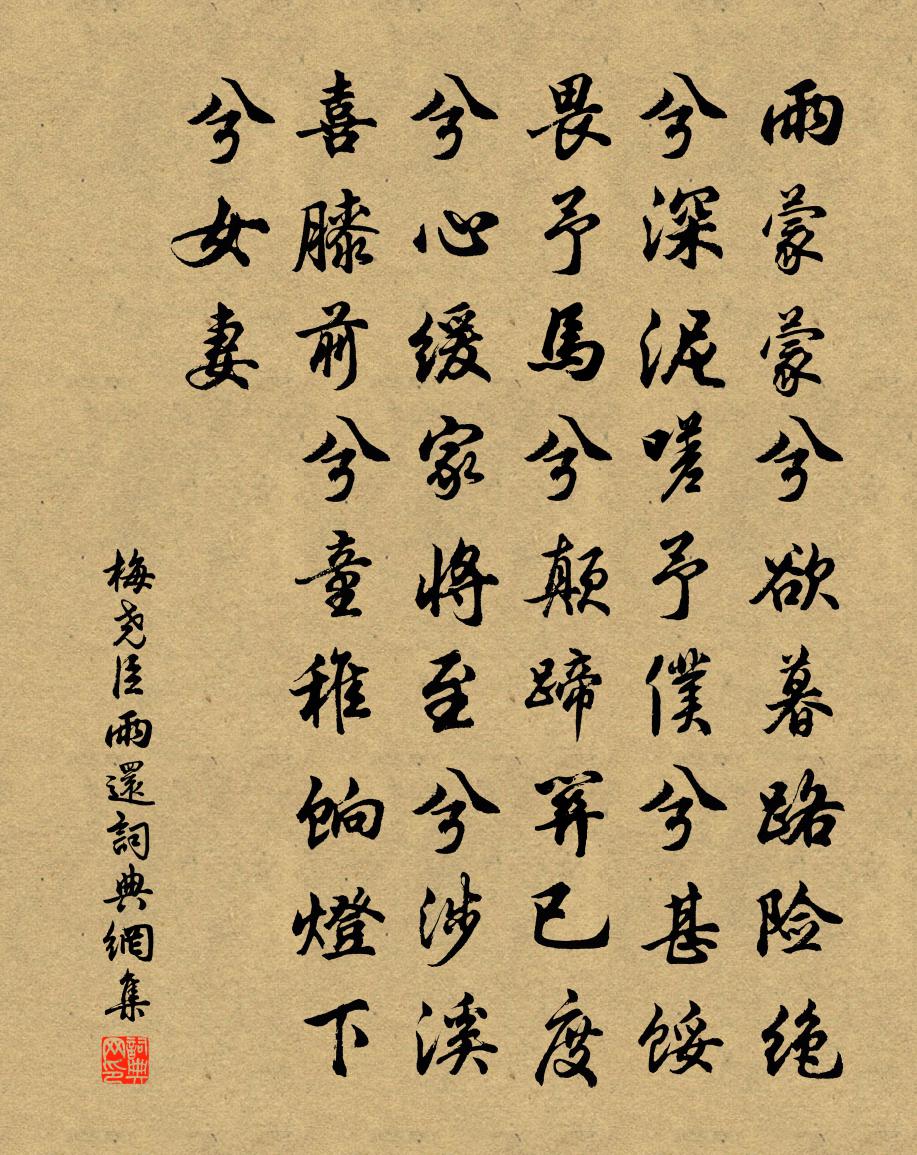 雨蒙蒙兮欲暮路险绝
兮深泥嗟予僕兮甚馁
畏予馬兮颠蹄关已度
兮心缓家将至兮涉溪
喜膝前兮童稚饷燈下
兮女妻
梅尧臣雨還詞典網集
詞典网印